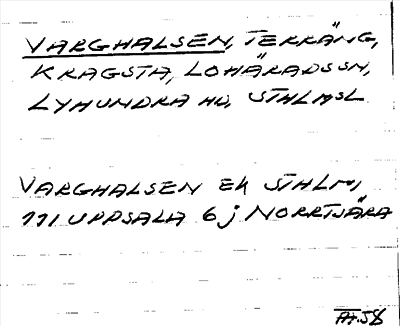 VARGHALSEN, TERRÄNG,
KRAGSTA, LOHÄRADS SN,
LYHUNDRA HD, STHLMSL
VARGHALSEN EK STHLM,
111 UPPSALA 6j NORRTJÄRA
PH.58